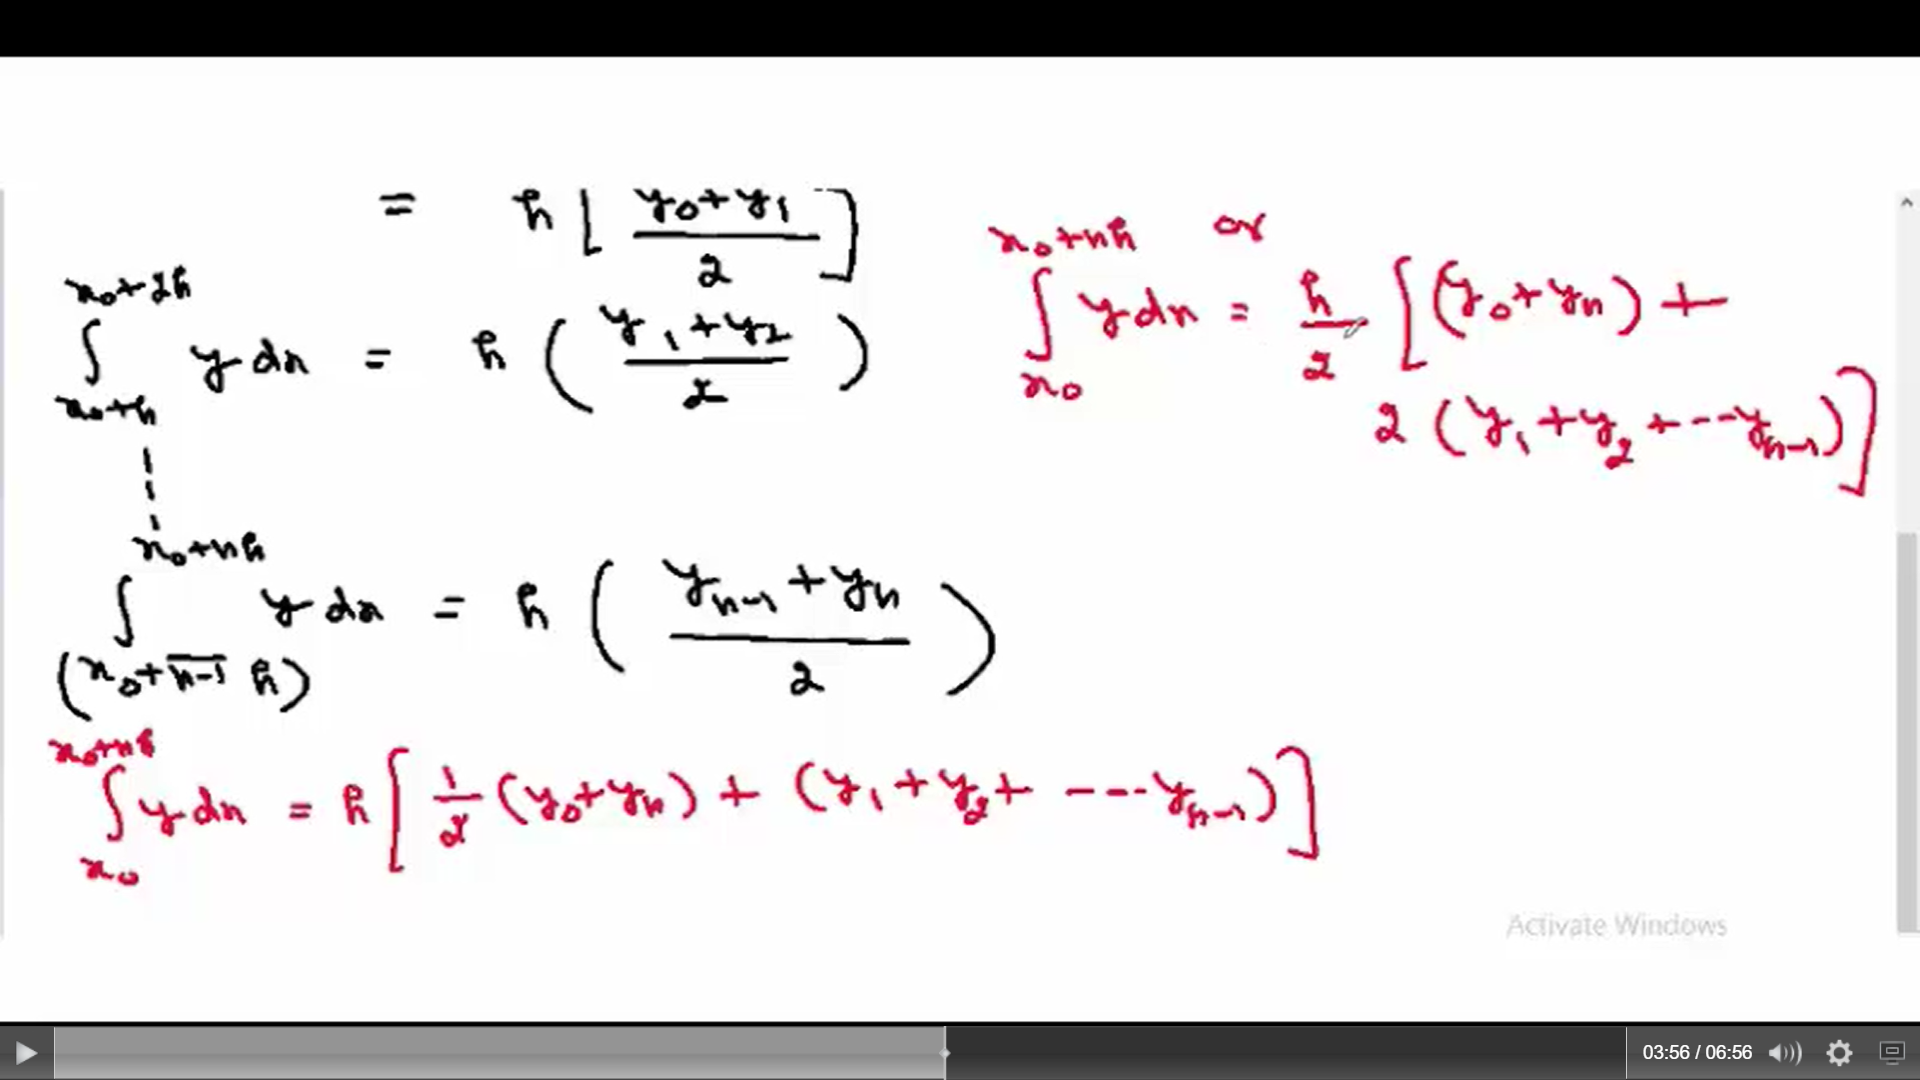 = h [ (y₀+y₁)/2 ]
∫_{x₀+h}^{x₀+2h} y dx = h ( (y₁+y₂)/2 )
∫_{(x₀+\overline{n-1} h)}^{x₀+nh} y dx = h ( (y_{n-1}+y_n)/2 )
∫_{x₀}^{x₀+nh} y dx = h [ 1/2 (y₀+y_n) + (y₁+y₂+ ---- y_{n-1}) ]
or
∫_{x₀}^{x₀+nh} y dx = h/2 [ (y₀+y_n) +
2 (y₁+y₂+ --- y_{n-1}) ]
Activate Windows
03:56 / 06:56